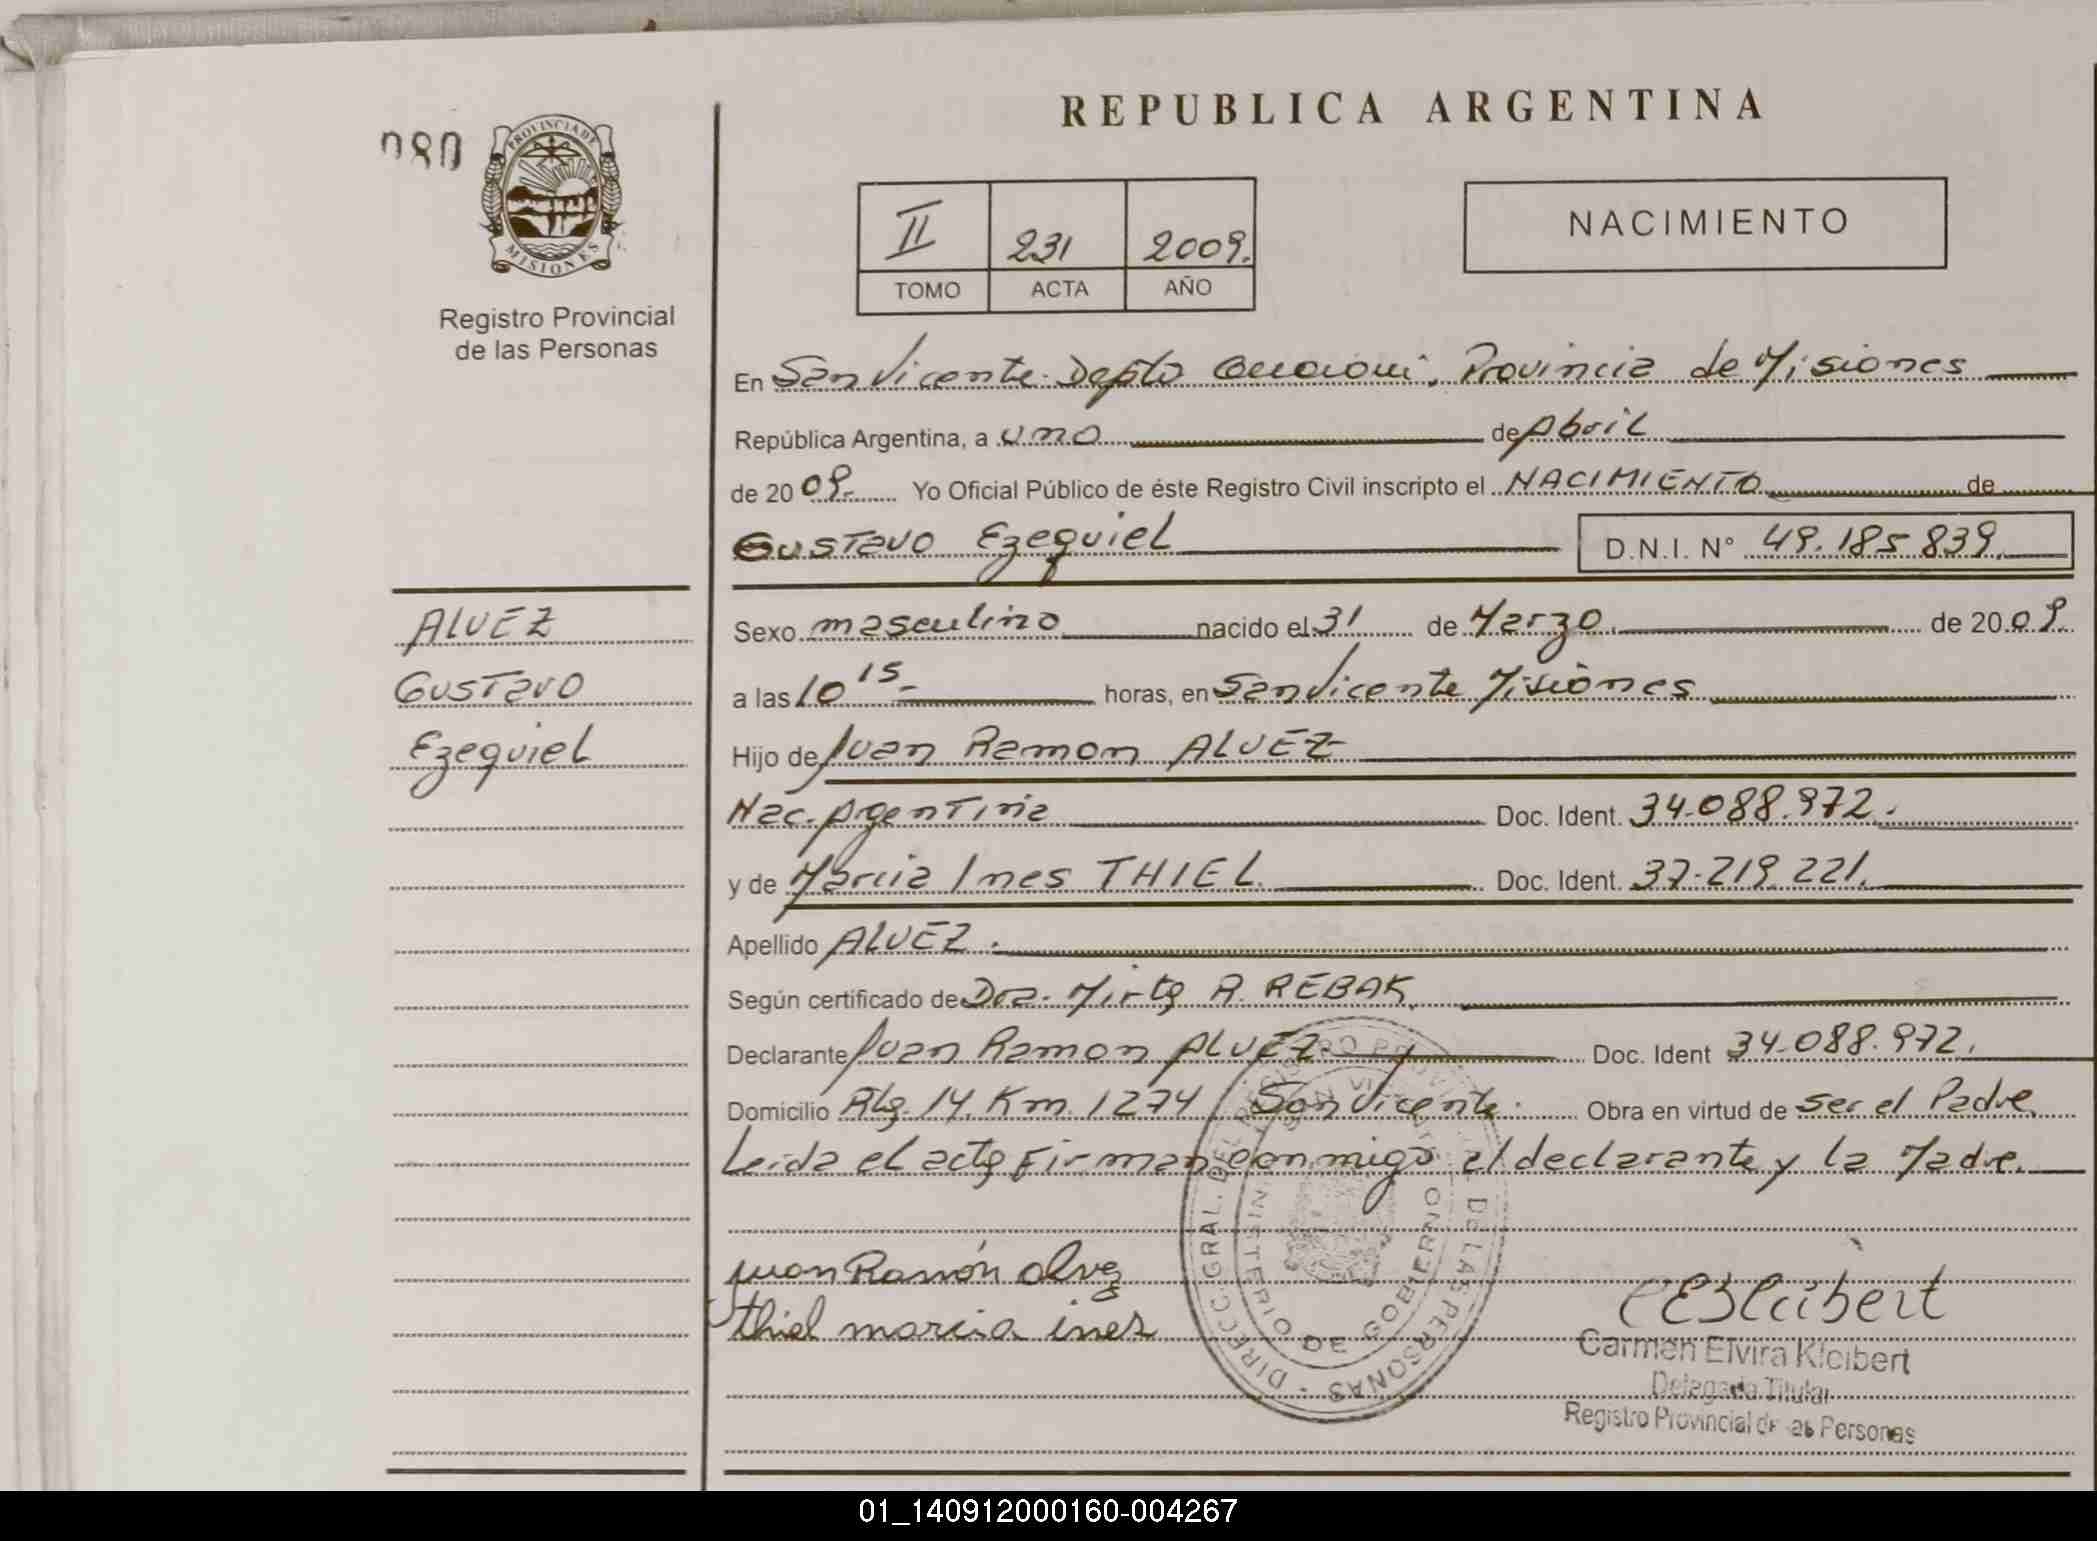 REPUBLICA ARGENTINA
080
PROVINCIA DE
MISIONES
Registro Provincial
de las Personas
II 231 2009.
TOMO ACTA AÑO
NACIMIENTO
En San Vicente. Depto Guaraní. Provincia de Misiones
República Argentina, a uno de Abril
de 20 09. Yo Oficial Público de éste Registro Civil inscripto el NACIMIENTO de
Gustavo Ezequiel D.N.I. N° 49.185.839.
ALVEZ
Gustavo
Ezequiel
Sexo masculino nacido el 31 de Marzo. de 20 09.
a las 10 15 horas, en San Vicente Misiones
Hijo de Juan Ramon ALVEZ
Nac. Agentina Doc. Ident. 34.088.972.
y de Marcia Ines THIEL Doc. Ident. 37.219.221.
Apellido ALVEZ.
Según certificado de Dra. Mirta R. REBAK.
Declarante Juan Ramon ALVEZ Doc. Ident 34.088.972.
Domicilio Rta. 14. Km. 1274 San Vicente. Obra en virtud de ser el Padre.
Leída el acta firman conmigo el declarante y la Madre.
Juan Ramón Alvez
Thiel marcia ines
DIRECC. GRAL. DEL REGISTRO PROVINCIAL DE LAS PERSONAS
MINISTERIO DE GOBIERNO
CEKleibert
Carmen Elvira Kleibert
Delegada Titular
Registro Provincial de las Personas
01_140912000160-004267